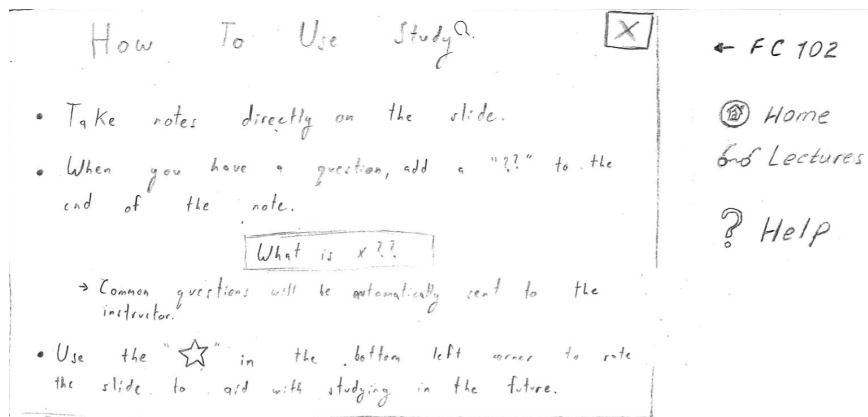 How To Use StudyQ.
X
← FC 102
• Take notes directly on the slide.
Home
• When you have a question, add a "??" to the
Lectures
end of the note.
? Help
What is x??
→ Common questions will be automatically sent to the
instructor.
• Use the "☆" in the bottom left corner to rate
the slide to aid with studying in the future.